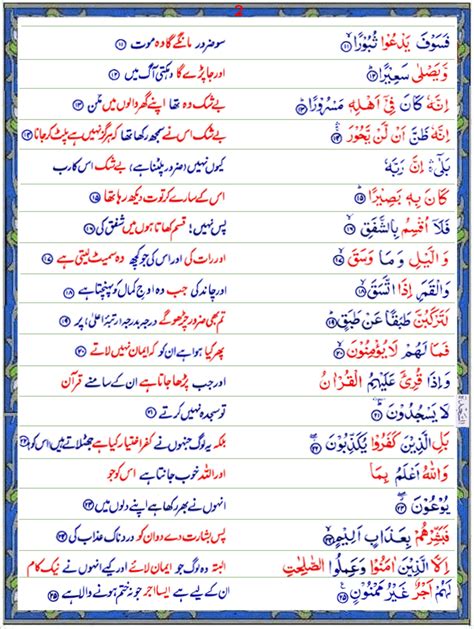 2
فَسَوْفَ يَدْعُوْا ثُبُوْرًا ۙ‏﴿۱۱﴾ سو ضرور مانگے گا وہ موت ﴿۱۱﴾
وَّيَصْلٰى سَعِيْرًا ؕ‏﴿۱۲﴾ اور جا پڑے گا دہکتی آگ میں ﴿۱۲﴾
اِنَّهٗ كَانَ فِىْۤ اَهْلِهٖ مَسْرُوْرًا ؕ‏﴿۱۳﴾ بے شک وہ تھا اپنے گھر والوں میں مگن ﴿۱۳﴾
اِنَّهٗ ظَنَّ اَنْ لَّنْ يَّحُوْرَ ۛۚ‏﴿۱۴﴾ بے شک اس نے سمجھ رکھا تھا کہ ہرگز نہیں ہے پلٹ کر جانا ﴿۱۴﴾
بَلٰٓى ۛۚ اِنَّ رَبَّهٗ کیوں نہیں (ضرور پلٹنا ہے) بے شک اس کا رب
كَانَ بِهٖ بَصِيْرًا ؕ‏﴿۱۵﴾ اس کے سارے کرتوت دیکھ رہا تھا ﴿۱۵﴾
فَلَاۤ اُقْسِمُ بِالشَّفَقِ ۙ‏﴿۱۶﴾ پس نہیں! قسم کھاتا ہوں میں شفق کی ﴿۱۶﴾
وَالَّيْلِ وَمَا وَسَقَ ۙ‏﴿۱۷﴾ اور رات کی اور اس کی جو کچھ وہ سمیٹ لیتی ہے ﴿۱۷﴾
وَالْقَمَرِ اِذَا اتَّسَقَ ۙ‏﴿۱۸﴾ اور چاند کی جب وہ اوج کمال کو پہنچتا ہے ﴿۱۸﴾
لَتَرْكَبُنَّ طَبَقًا عَنْ طَبَقٍ ؕ‏﴿۱۹﴾ تم بھی ضرور چڑھو گے درجہ بدرجہ رتبۂ اعلیٰ پر ﴿۱۹﴾
فَمَا لَهُمْ لَا يُؤْمِنُوْنَ ۙ‏﴿۲۰﴾ پھر کیا ہوا ہے ان کو کہ ایمان نہیں لاتے ﴿۲۰﴾
وَاِذَا قُرِئَ عَلَيْهِمُ الْقُرْاٰنُ اور جب پڑھا جاتا ہے ان کے سامنے قرآن
لَا يَسْجُدُوْنَ ؕ‏﴿۲۱﴾ تو سجدہ نہیں کرتے ﴿۲۱﴾
بَلِ الَّذِيْنَ كَفَرُوْا يُكَذِّبُوْنَ ۖ‏﴿۲۲﴾ بلکہ یہ لوگ جنہوں نے کفر اختیار کیا ہے جھٹلاتے ہیں اس کو ﴿۲۲﴾
وَاللّٰهُ اَعْلَمُ بِمَا اور اللہ خوب جانتا ہے اس کو جو
يُوْعُوْنَ ۖ‏﴿۲۳﴾ انہوں نے بھر رکھا ہے اپنے دلوں میں ﴿۲۳﴾
فَبَشِّرْهُمْ بِعَذَابٍ اَلِيْمٍ ۙ‏﴿۲۴﴾ پس بشارت دے دو ان کو دردناک عذاب کی ﴿۲۴﴾
اِلَّا الَّذِيْنَ اٰمَنُوْا وَعَمِلُوا الصّٰلِحٰتِ البتہ وہ لوگ جو ایمان لائے اور کیے انہوں نے نیک کام
لَهُمْ اَجْرٌ غَيْرُ مَمْنُوْنٍ‏﴿۲۵﴾ ان کے لیے ہے ایسا اجر جو نہ ختم ہونے والا ہے ﴿۲۵﴾